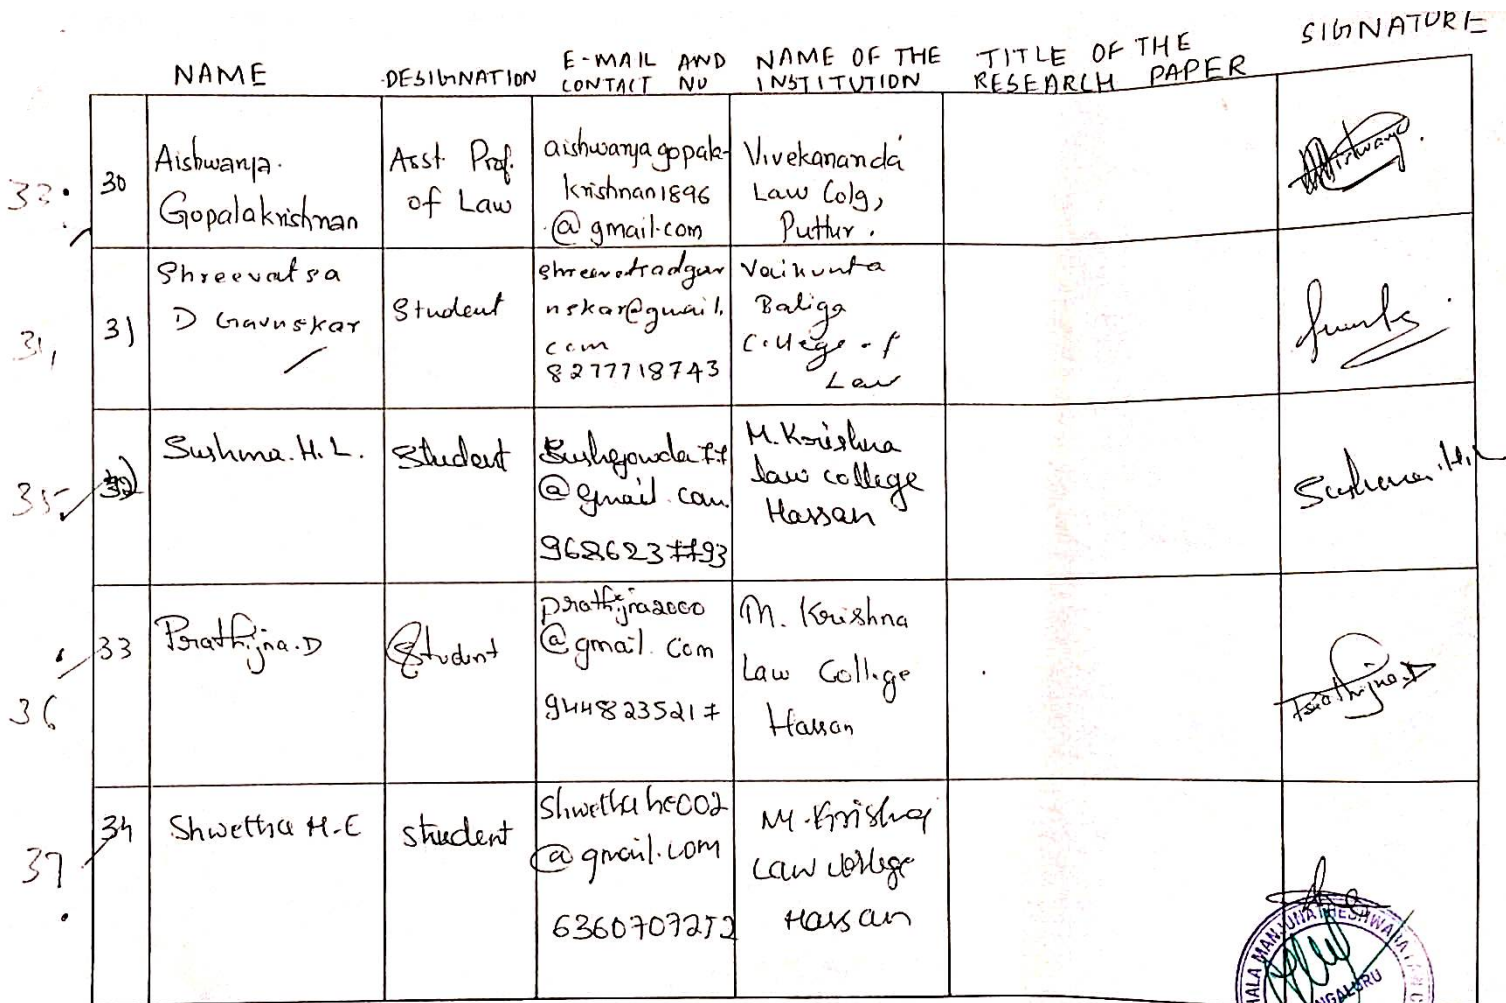 NAME DESIGNATION E-MAIL AND CONTACT NO NAME OF THE INSTITUTION TITLE OF THE RESEARCH PAPER SIGNATURE
33. 30 Aishwarya Gopalakrishnan
Asst Prof. of Law
aishwaryagopala-
krishnan1896
@gmail.com
Vivekananda
Law Colg,
Puttur.
34, 31) Shreevatsa
D Gavnskar
Student
nskar@gmail.
com
8277718743
Vaikunta
Baliga
College of
Law
35 32) Sushma.H.L.
Student
Sushgowda77
@gmail.com
9686237793
M.Krishna
law college
Hassan
Sushma.H.L
36 33 Prathijna.D
Student
prathijna2000
@gmail.com
9448235217
M. Krishna
Law College
Hassan
Prathijna.D
37 34 Shwetha H-E
student
Shwethahe002
@gmail.com
6360707252
M.Krishna
Law college
Hassan